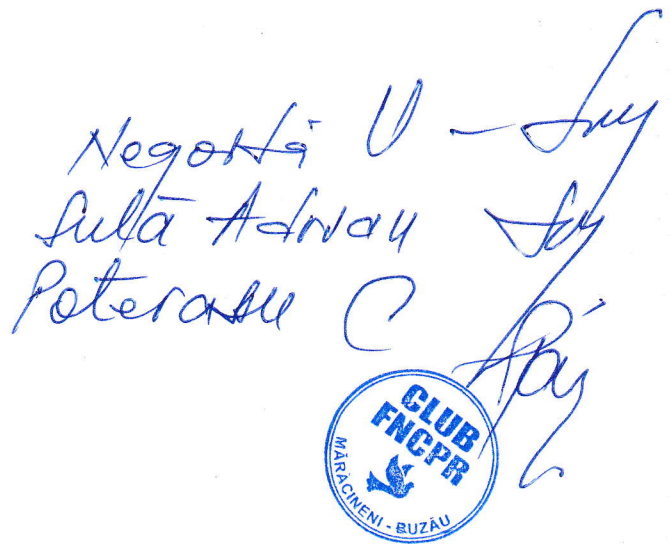 Negoită U -
Sulță Adrian
Poterasu C
CLUB
FNCPR
MĂRĂCINENI - BUZĂU